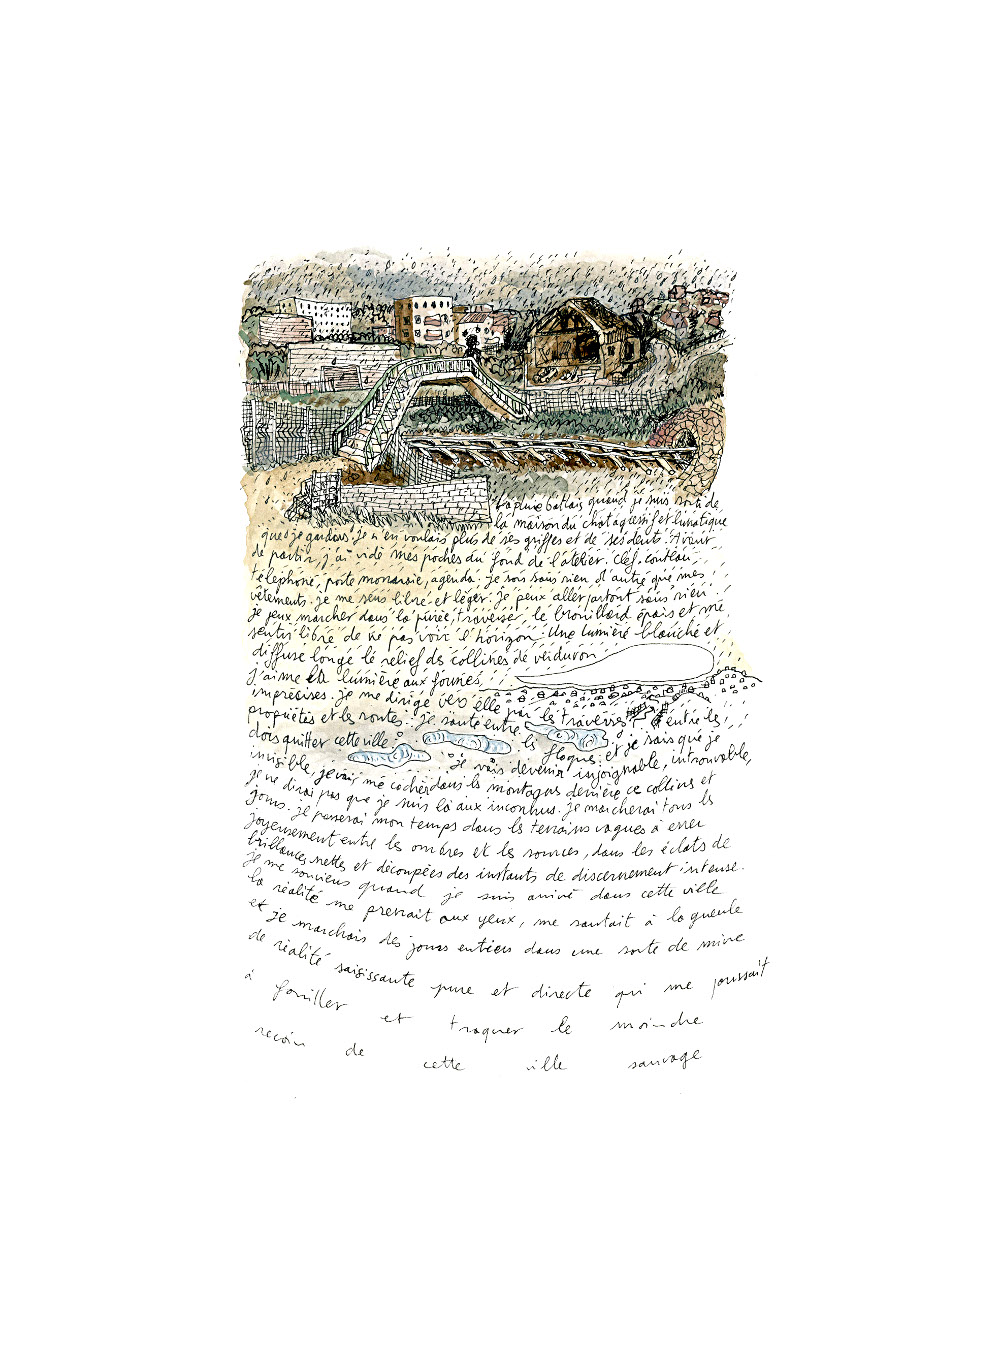 La pluie battais quand je suis sorti de
la maison du chat agressif et lunatique
que je gardais. Je n'en voulais plus de ses griffes et de ses dents. Avant
de partir, j'ai vidé mes poches du fond de l'atelier. Clef, couteau,
téléphone, porte monnaie, agenda. je sors sans rien d'autre que mes
vêtements. je me sens libre et léger. Je peux aller partout sans rien.
je peux marcher dans la purée, traverser le brouillard épais et me
sentir libre de ne pas voir l'horizon. Une lumière blanche et
diffuse longe le relief des collines de verduron
j'aime la lumière aux formes
imprécises. je me dirige vers elle par les traverses entre les
propriétés et les routes. je saute entre
les flaques et je sais que je
dois quitter cette ville.
je vais devenir injoignable, introuvable,
invisible, je vais me cacher dans les montagnes derrière ce collines et
je ne dirai pas que je suis là aux inconnus. je marcherai tous les
jours. je passerai mon temps dans les terrains vagues à errer
joyeusement entre les ombres et les sources, dans les éclats de
brillances nettes et découpées des instants de discernement intense.
je me souviens quand je suis arrivé dans cette ville
la réalité me prenait aux yeux, me sautait à la gueule
et je marchais des jours entiers dans une sorte de mine
de réalité saisissante pure et directe qui me poussait
à fouiller et traquer le moindre
recoin de cette ville sauvage